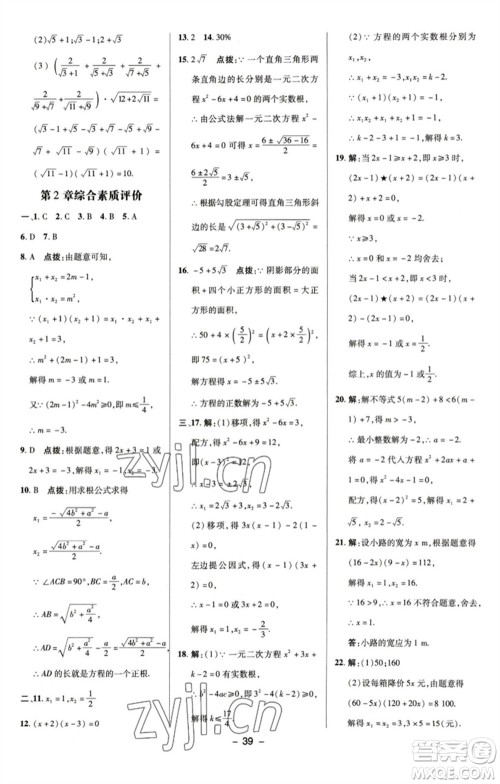 (2) x₁ = 3, x₂ = -1.
(3) (2/(√3+1) + 2/(√5+√3) + 2/(√7+√5) + 2/(√9+√7) + 2/(√11+√9)) · √(12+2√11)
= (√3-1+√5-√3+√7-√5+√9-√7+√11-√9)(√11+1)
= (√11-1)(√11+1)
= 10.
第2章综合素质评价
一、1. C 2. C 3. B 4. B 5. A
6. D 7. B
8. A 点拨：由题意可知，
{ x₁+x₂=2m-1,
x₁·x₂=m²,
∵(x₁+1)(x₂+1)=x₁x₂+(x₁+x₂)+1=3,
∴m²+(2m-1)+1=3,
解得 m=-3 或 m=1.
又∵Δ=(2m-1)²-4m²≥0,即 m≤1/4,
∴m=-3.
9. D 点拨：根据题意，得 2x+3=1 或
2x+3=-3,解得 x₁=-1,x₂=-3.
10. B 点拨：用求根公式求得
∵∠ACB=90°,BC=a/2,AC=b,
∴AB=√(b²+a²/4),
∴AD=√(b²+a²/4)-a/2=(√(4b²+a²)-a)/2.
∴AD 的长就是方程的一个正根.
二、11. x₁=1,x₂=1/2
12. (x+2)(x-3)=0
13. 2 14. 30%
15. 2√7 点拨：∵一个直角三角形两
条直角边的长分别是一元二次方
程 x²-6x+4=0 的两个实数根，
∴由公式法解一元二次方程
x²-6x+4=0,得 x=(6±√(36-16))/2=
(6±2√5)/2=3±√5.
∴根据勾股定理可得直角三角形斜
边的长是√((3+√5)²+(3-√5)²)=
√28=2√7.
16. -5+5√3 点拨：∵阴影部分的面
积+四个小正方形的面积=大正方
形的面积，
∴50+4×(5/2)²=(x+5/2+5/2)²,
即 75=(x+5)²,
解得 x=-5±5√3,
∴方程的正数解为-5+5√3.
三、17. 解：(1)移项，得 x²-6x=-6,
配方，得 x²-6x+9=-6+9,
即(x-3)²=3,
两边开平方，得 x-3=±√3,
∴x₁=3+√3,x₂=3-√3.
(2)移项，得 3x(x-1)-2(x-1)=0,
左边提公因式，得(x-1)(3x-2)
=0,
∴x-1=0 或 3x-2=0,
解得 x₁=1,x₂=2/3.
18. 解：(1)∵一元二次方程 x²-3x+
k-2=0 有实数根，
∴Δ≥0,即(-3)²-4(k-2)≥0,
解得 k≤17/4.
(2)∵方程的两个实数根分别为
x₁,x₂,
∴x₁+x₂=3,x₁x₂=k-2.
∵(x₁+1)(x₂+1)=-1,
∴x₁x₂+(x₁+x₂)+1=-1,
∴k-2+3+1=-1,解得 k=-3.
19. 解：当 2x-1≥x+2,即 x≥3 时，
(2x-1)★(x+2)=(2x-1)(x+2)
+x+2=0,
解得 x=0 或 x=-2.
∵x≥3,
∴x=0 和 x=-2 均舍去；
当 2x-1<x+2,即 x<3 时，
(2x-1)★(x+2)=(2x-1)(x+2)
-(2x-1)=0,
解得 x=-1 或 x=1/2.
综上，x 的值为-1 或 1/2.
20. 解：解不等式 5(m-2)+8<6(m-
1)+7,得 m>-3,
∴最小整数解为-2,∴a=-2.
将 a=-2 代入方程 x²+2ax+a+
1=0,得 x²-4x-1=0,
配方，得(x-2)²=5,
解得 x₁=2+√5,x₂=2-√5.
21. 解：设小路的宽为 x m,根据题意，得
(16-2x)(9-x)=112,
解得 x₁=1,x₂=16.
∵16>9,∴x=16 不符合题意，舍去，
∴x=1.
答：小路的宽应为 1 m.
22. 解：(1)50;160
(2)设每箱降价 5x 元，根据题意，得
(60-5x)(120+20x)=8 100,
解得 x₁=x₂=3,3×5=15(元).
39
zyjl.cn
zyjl.cn
答案圈
MXQE.COM